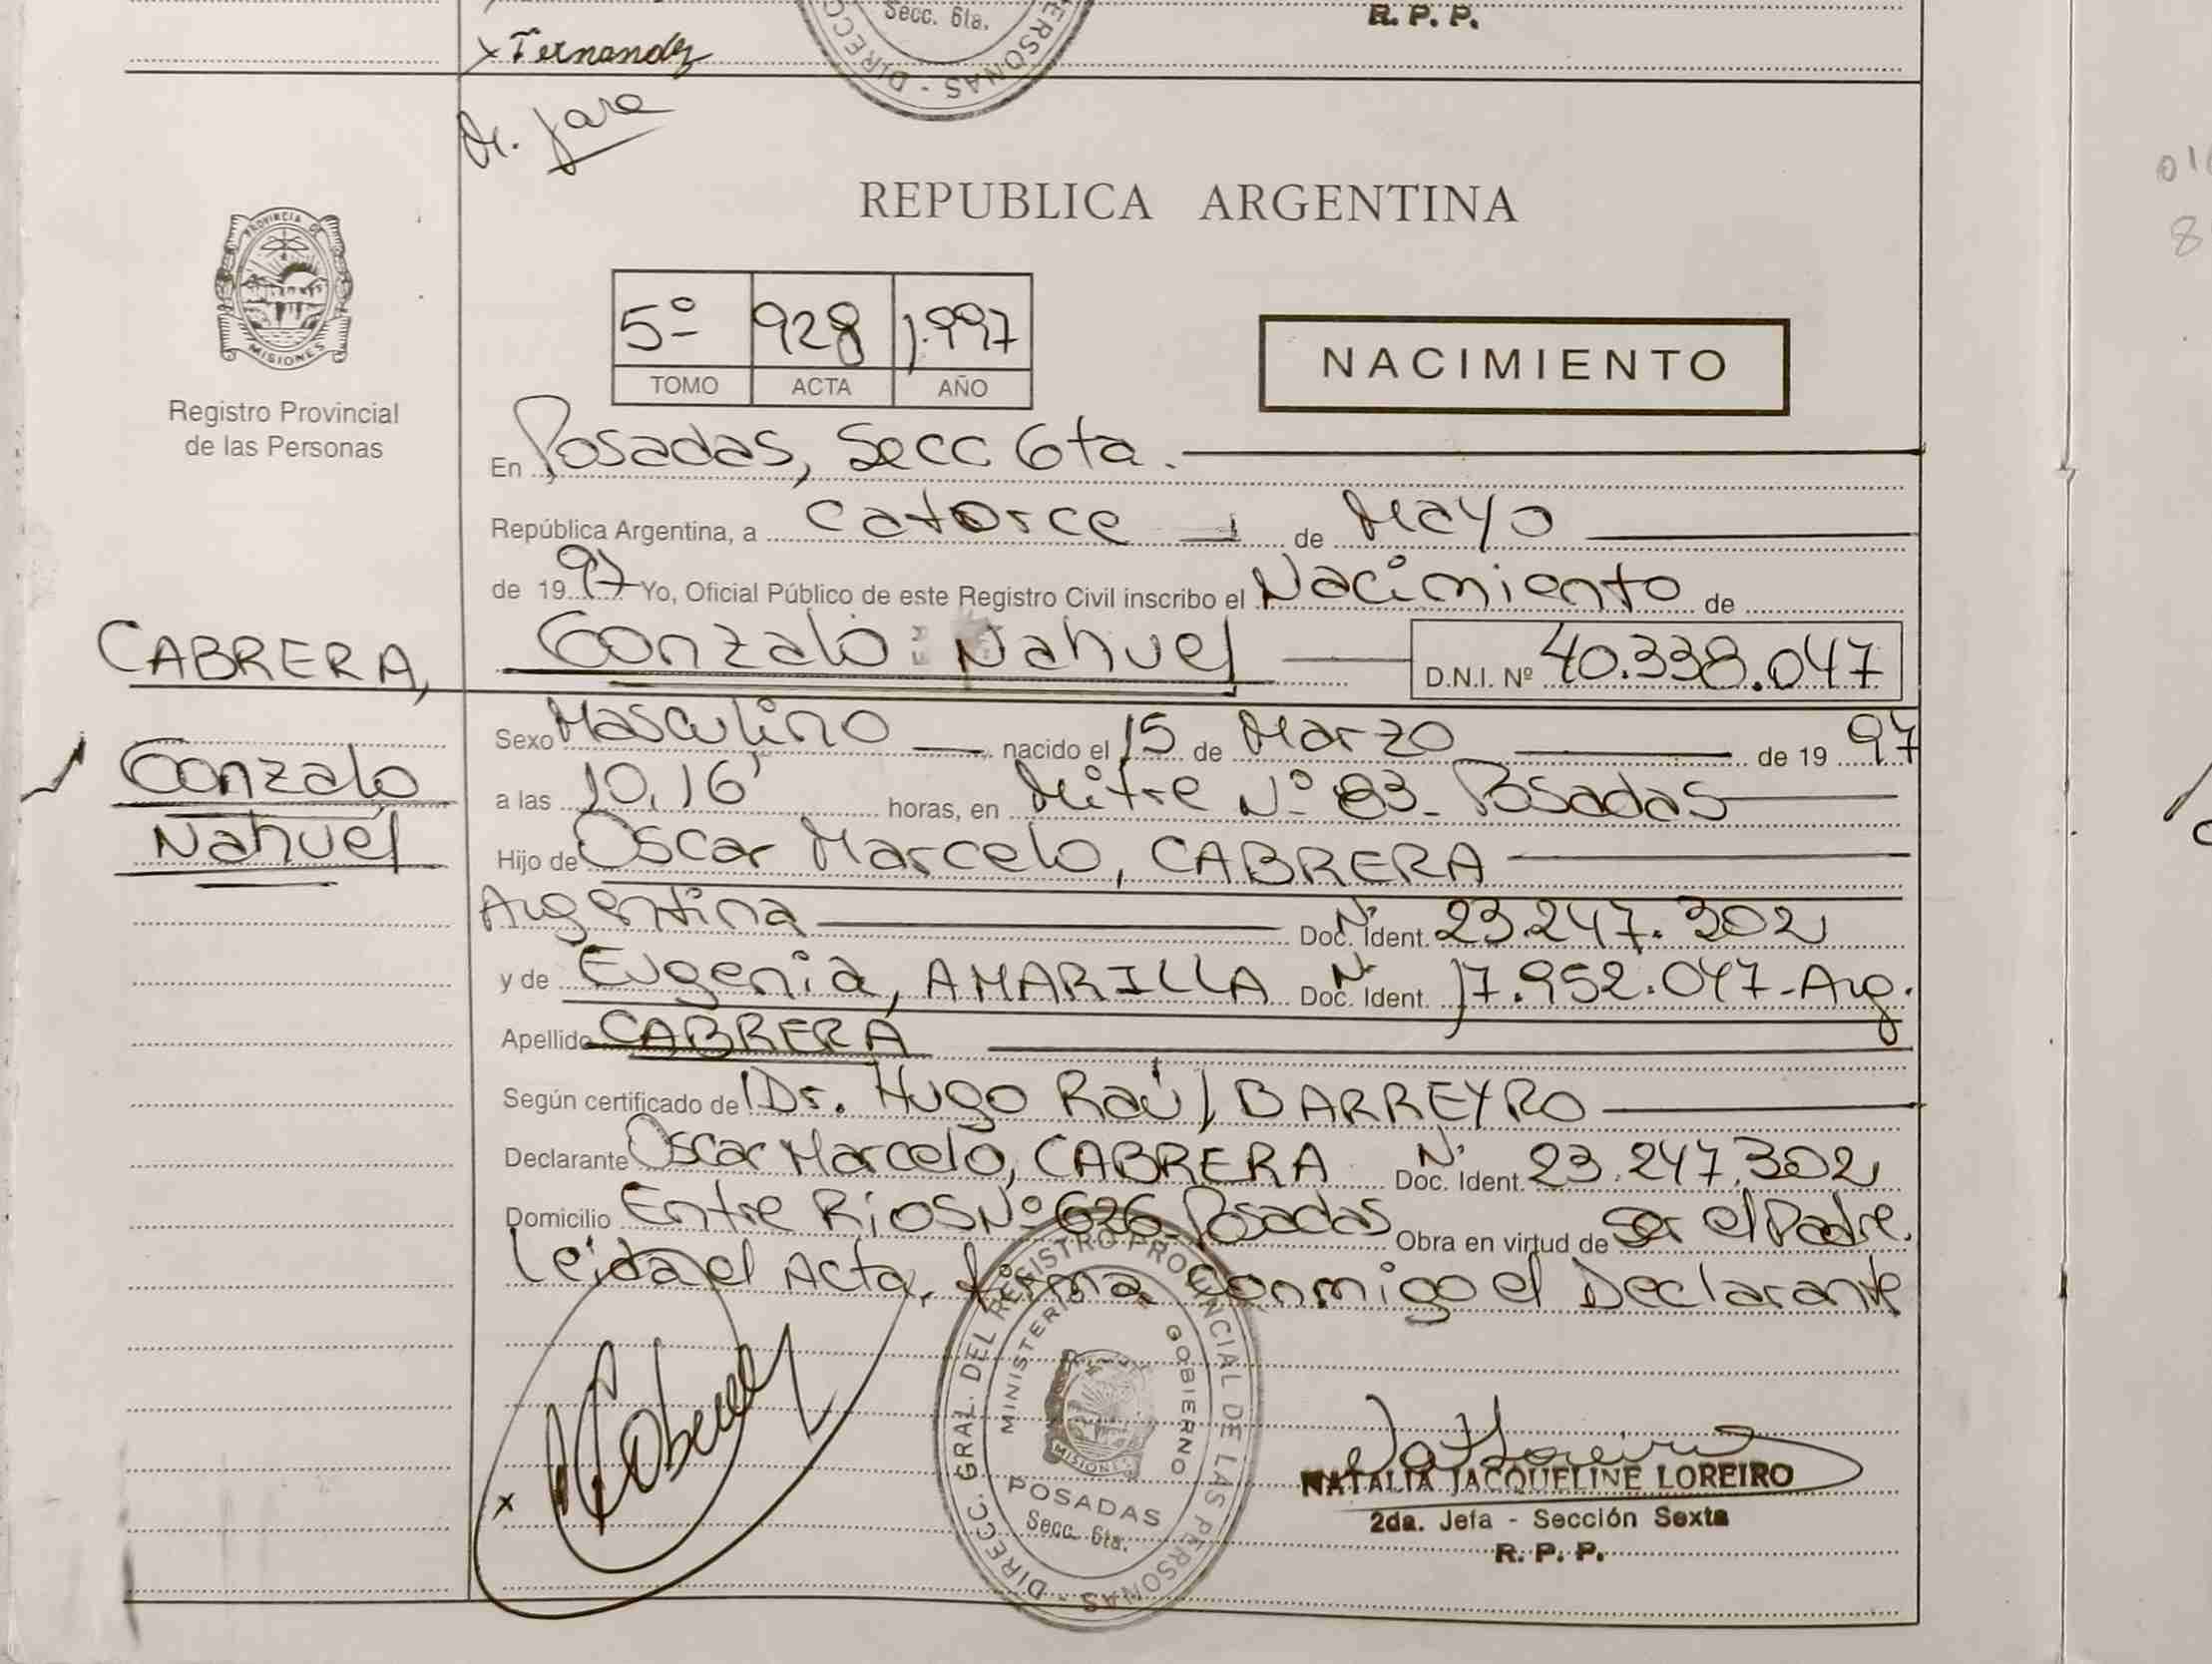 Secc. 6ta.
R. P. P.
x Fernandez
PERSONAS - DIRECC
Dr. Jara
REPUBLICA ARGENTINA
PROVINCIA DE
MISIONES
5º 928 1.997
TOMO ACTA AÑO
NACIMIENTO
Registro Provincial
de las Personas
En Posadas, Secc 6ta.
República Argentina, a catorce de Mayo
de 1997 Yo, Oficial Público de este Registro Civil inscribo el Nacimiento de
CABRERA,
Gonzalo Nahuel D.N.I. Nº 40.338.047
Gonzalo
Nahuel
Sexo Masculino nacido el 15 de Marzo de 19 97
a las 10,16' horas, en Mitre Nº 83- Posadas
Hijo de Oscar Marcelo, CABRERA
Argentina Doc. Ident. N. 23.247.302
y de Eugenia, AMARILLA Doc. Ident. N. 17.952.047-Arg.
Apellido CABRERA
Según certificado de Dr. Hugo Raúl BARREYRO
Declarante Oscar Marcelo, CABRERA Doc. Ident. N. 23.247.302
Domicilio Entre Ríos Nº 626 Posadas Obra en virtud de ser el Padre.
Leida el Acta, firma conmigo el Declarante
DIRECC. GRAL. DEL REGISTRO PROVINCIAL DE LAS PERSONAS -
MINISTERIO GOBIERNO
MISIONES
POSADAS
Secc. 6ta.
x
NATALIA JACQUELINE LOREIRO
2da. Jefa - Sección Sexta
R. P. P.